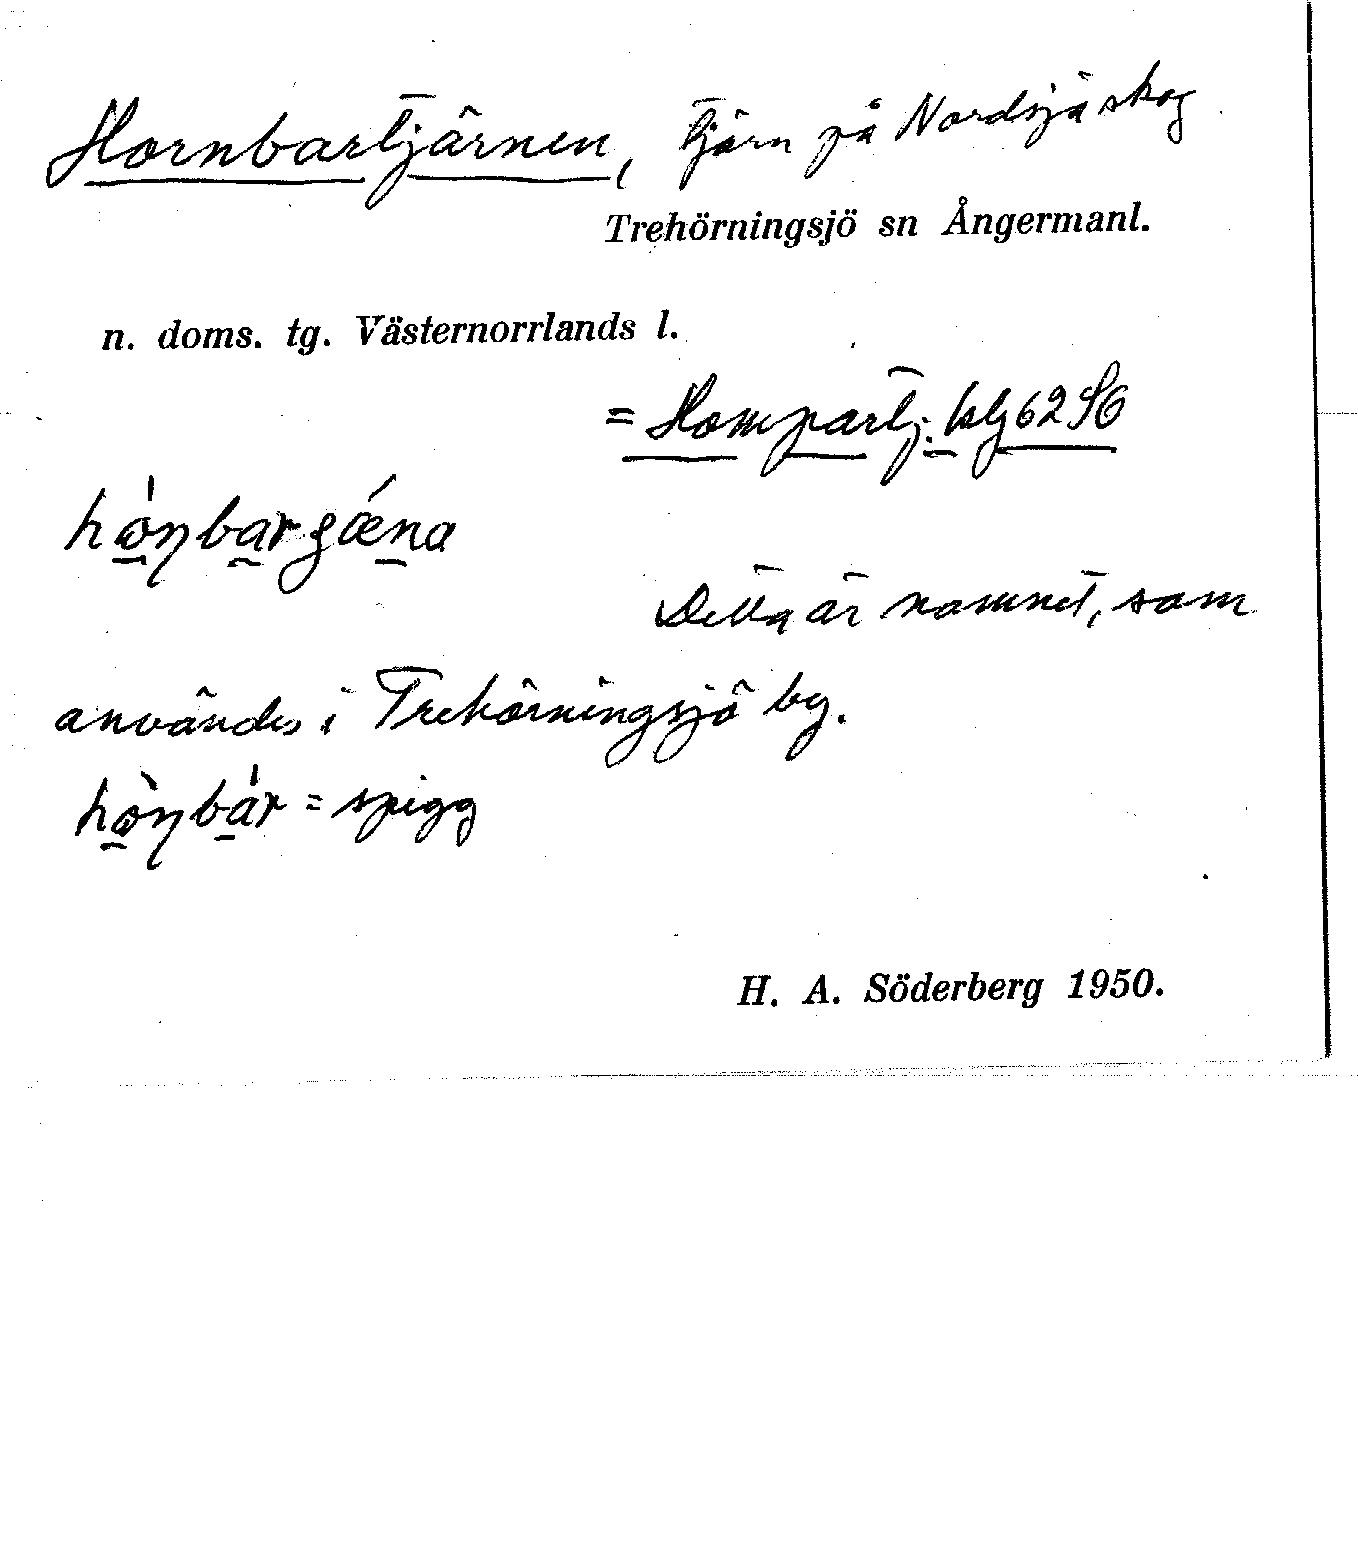 Hornbartjärnen, tjärn på Nordsjö skog
Trehörningsjö sn Ångermanl.
n. doms. tg. Västernorrlands l.
= Hompartj. blg 62 S6
Detta är namnet, som
användes i Trehörningsjö by.
= spigg
H. A. Söderberg 1950.